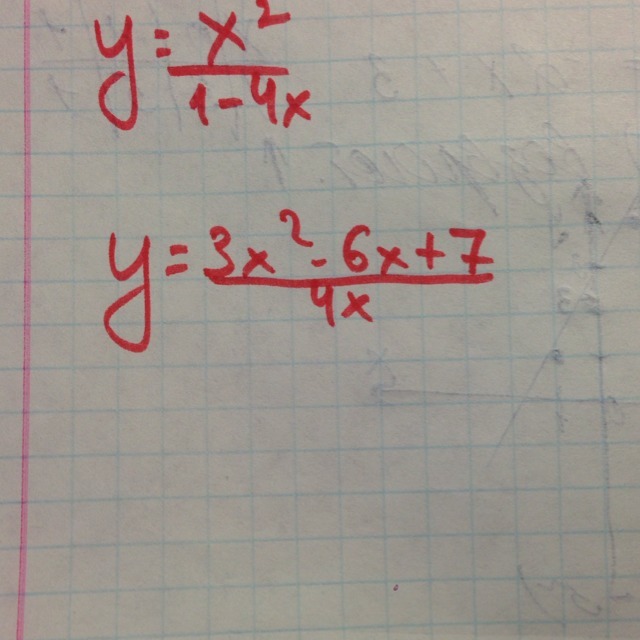 y = x² / (1 - 4x)
y = (3x² - 6x + 7) / 4x